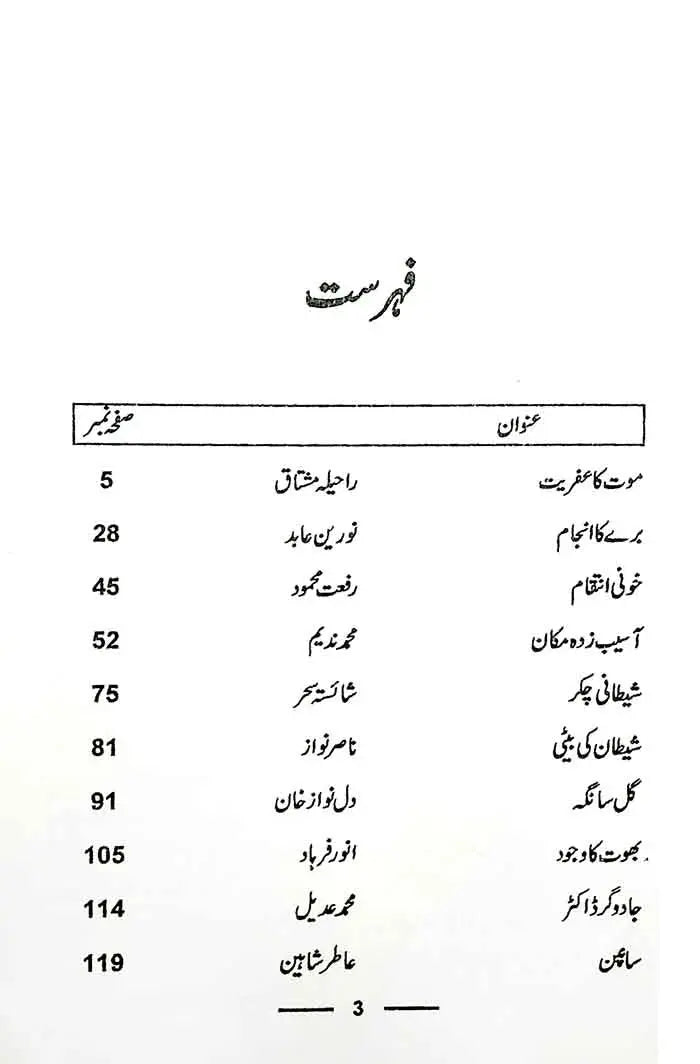 فہرست
عنوان صفحہ نمبر
موت کا عفریت راحیلہ مشتاق 5
برے کا انجام نورین عابد 28
خونی انتقام رفعت محمود 45
آسیب زدہ مکان محمد ندیم 52
شیطانی چکر شائستہ سحر 75
شیطان کی بیٹی ناصر نواز 81
گل سانگہ دل نواز خان 91
بھوت کا وجود انور فرہاد 105
جادوگر ڈاکٹر محمد عدیل 114
سایپن عاطر شاہین 119
3